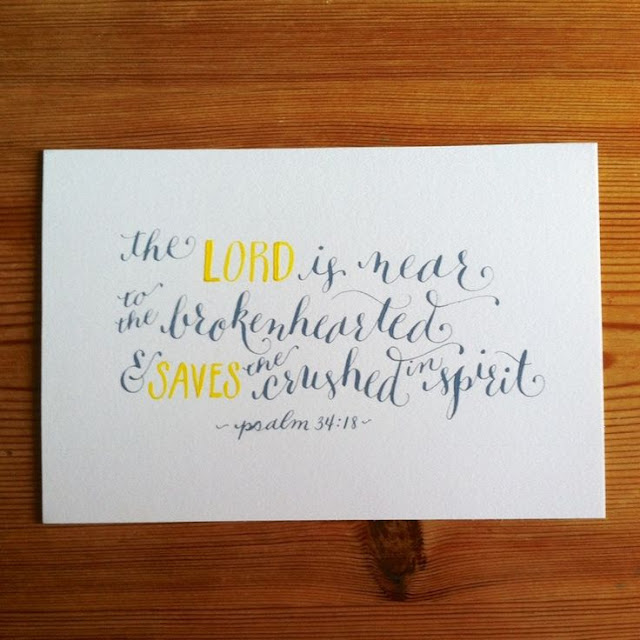 the LORD is near
to the brokenhearted
& SAVES the crushed in spirit
~ psalm 34:18 ~